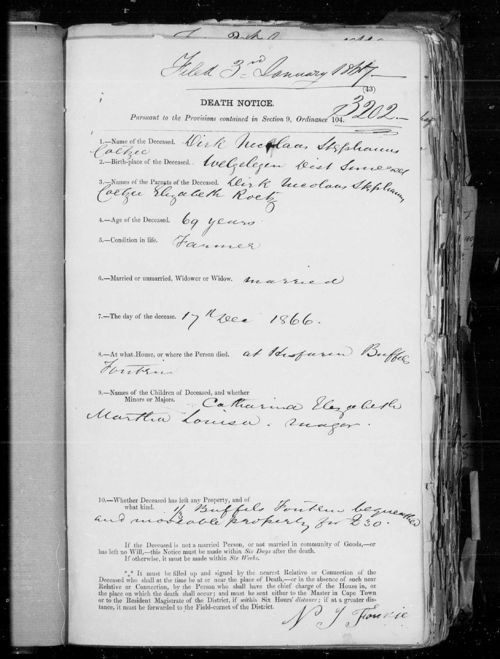 Filed 3rd January 1867
(43)
DEATH NOTICE.
Pursuant to the Provisions contained in Section 9, Ordinance 104.
3202.
1.—Name of the Deceased. Dirk Nicolaas Stephanus
Coetzee
2.—Birth-place of the Deceased. Welgelegen Dist Somerset
3.—Names of the Parents of the Deceased. Dirk Nicolaas Stephanus
Coetzee Elizabeth
4.—Age of the Deceased. 69 years
5.—Condition in life. Farmer
6.—Married or unmarried, Widower or Widow. married
7.—The day of the decease. 17th Dec 1866.
8.—At what House, or where the Person died. at His farm Buffels
Fontein
9.—Names of the Children of Deceased, and whether
Minors or Majors. Catharina Elizabeth
Martha Louisa. major.
10.—Whether Deceased has left any Property, and of
what kind. Buffels Fontein bequeathed
and moveable property for £30.
If the Deceased is not a married Person, or not married in community of Goods,—or
has left no Will,—this Notice must be made within Six Days after the death.
If otherwise, it must be made within Six Weeks.
*** It must be filled up and signed by the nearest Relative or Connection of the
Deceased who shall at the time be at or near the place of Death,—or in the absence of such near
Relative or Connection, by the Person who shall have the chief charge of the House in, or
the place on which the death shall occur; and must be sent either to the Master in Cape Town
or to the Resident Magistrate of the District, if within Six Hours' distance; if at a greater dis-
tance, it must be forwarded to the Field-cornet of the District.
N J Fourie